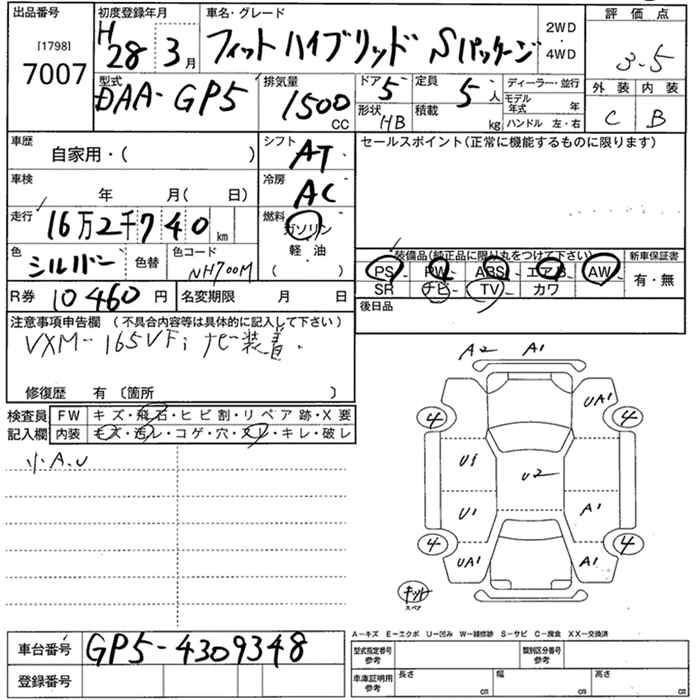 出品番号 初度登録年月 車名・グレード 2WD・4WD 評価点
[1798] 7007 H28 3月 フィットハイブリッド Sパッケージ 3.5
型式 排気量 ドア 5 定員 5人 ディーラー・並行 外装 内装
DAA-GP5 1500CC 形状 HB 積載 kg モデル年式 年 C B
ハンドル 左・右
車歴 自家用・( ) シフト AT セールスポイント(正常に機能するものに限ります)
車検 年 月( 日) 冷房 AC
走行 16万2千740km 燃料 ガソリン
色 シルバー 色替 色コード NH700M 軽・油 ( )
装備品(純正品に限り丸をつけて下さい) 新車保証書
PS PW ABS エアB AW 有・無
SR ナビ TV カワ
R券 10460円 名変期限 月 日 後日品
注意事項申告欄 (不具合内容等は具体的に記入して下さい)
VXM-165VFi ナビー装着.
修復歴 有 〔箇所 〕
検査員記入欄 FW キズ・飛石・ヒビ割・リペア跡・X要
内装 キズ・汚レ・コゲ・穴・スレ・キレ・破レ
小A.U
A2 A1
UA1
4 4
U1 U2
U1 A1
4 4
UA1 A1
キット
スペア
A−キズ E−エクボ U−凹み W−補修跡 S−サビ C−腐食 XX−交換済
車台番号 GP5-4309348 型式指定番号 参考 類別区分番号 参考
登録番号 車庫証明用 参考 長さ cm 幅 cm 高さ cm